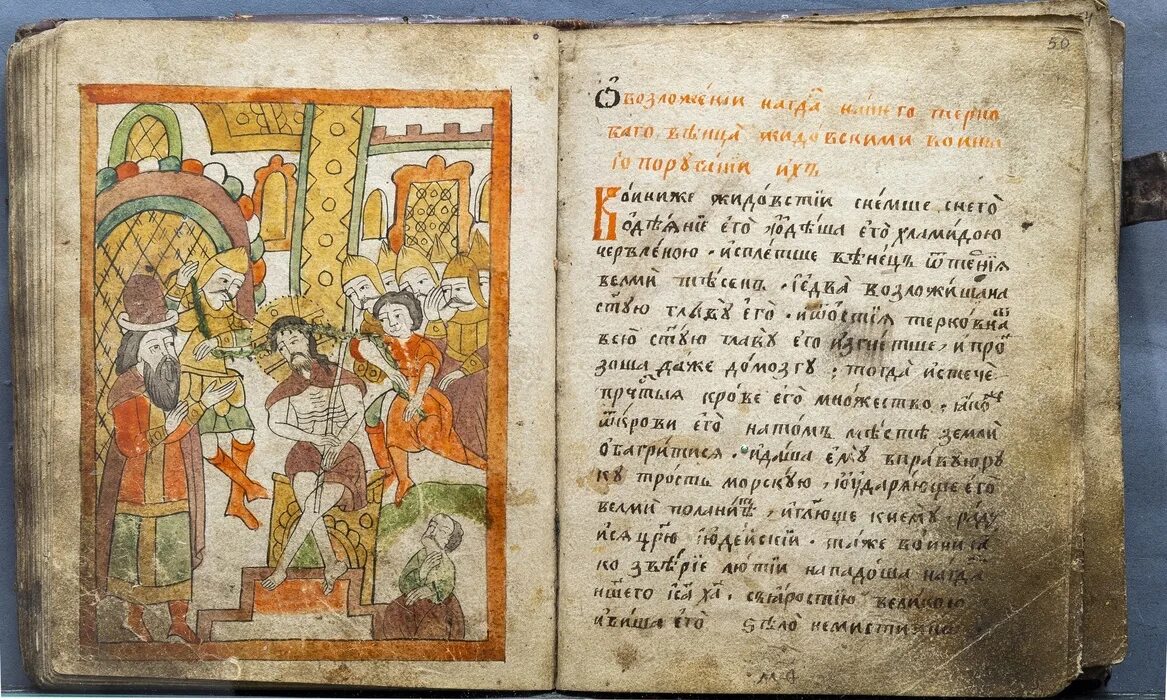 50
Ѽ возложенїи нагда҇ нашего терно
ваго вѣнца жидовскими воины
їо порꙋганїи ихъ
Воиниже жидовстїи снемше снего
одѣѧнїе его їѡдѣша его хламидою
червленою · исплетше вѣнецъ ѿтернїѧ
велми тѣсенъ · їедва возложишана
ст҃ꙋю главꙋ его · иѡостїѧ терновна
всю ст҃ꙋю главꙋ его изгнетше , ипро
зоша даже домозгꙋ , тогда истече
прчⷭтыѧ крове его множество , ꙗко
ѿкрови его натомъ мѣстѣ земли
обагритисѧ · идаша емꙋ вправꙋюрꙋ
кꙋ трость морскꙋю , їꙋдарѧюще его
велми поланитⷨ , иглюще киемꙋ радꙋ
исѧ цр҃ю їюдейскїй · таже воини ꙗ
ко звѣрїе лютїи нападоша нагда҇
ншего ї҃са х҃а , съꙗростїю великою
ибиша его ѕѣло немистивно